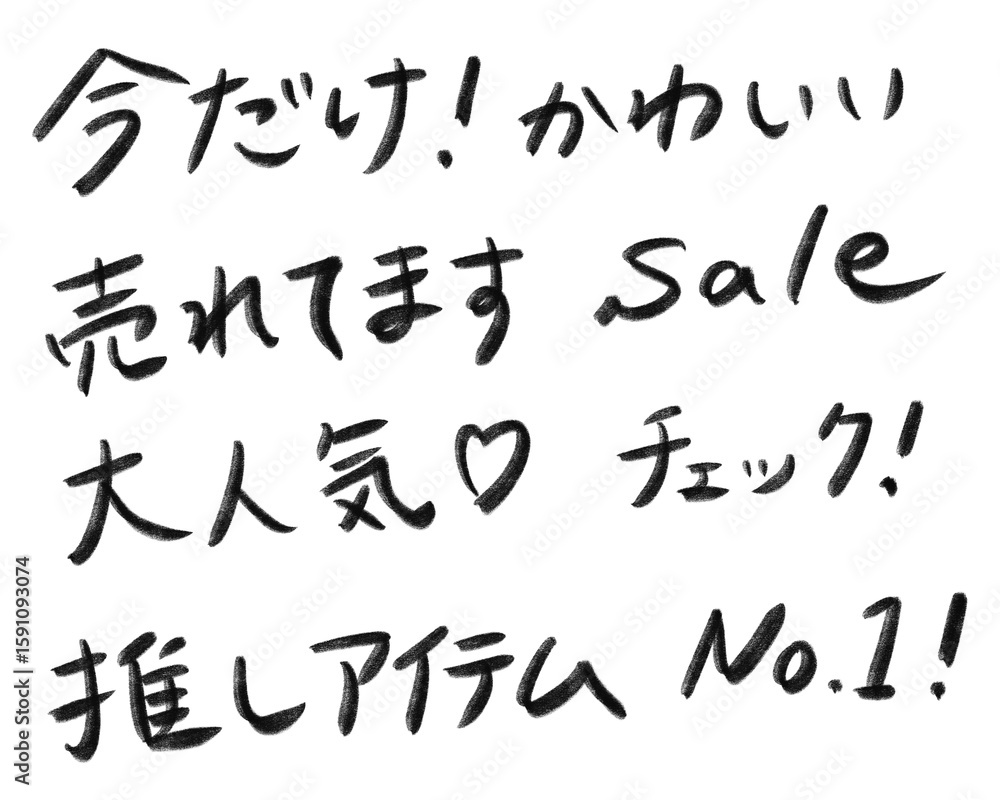 今だけ! かわいい
売れてます sale
大人気♡ チェック!
推しアイテム No.1!
Adobe Stock | #1591093074